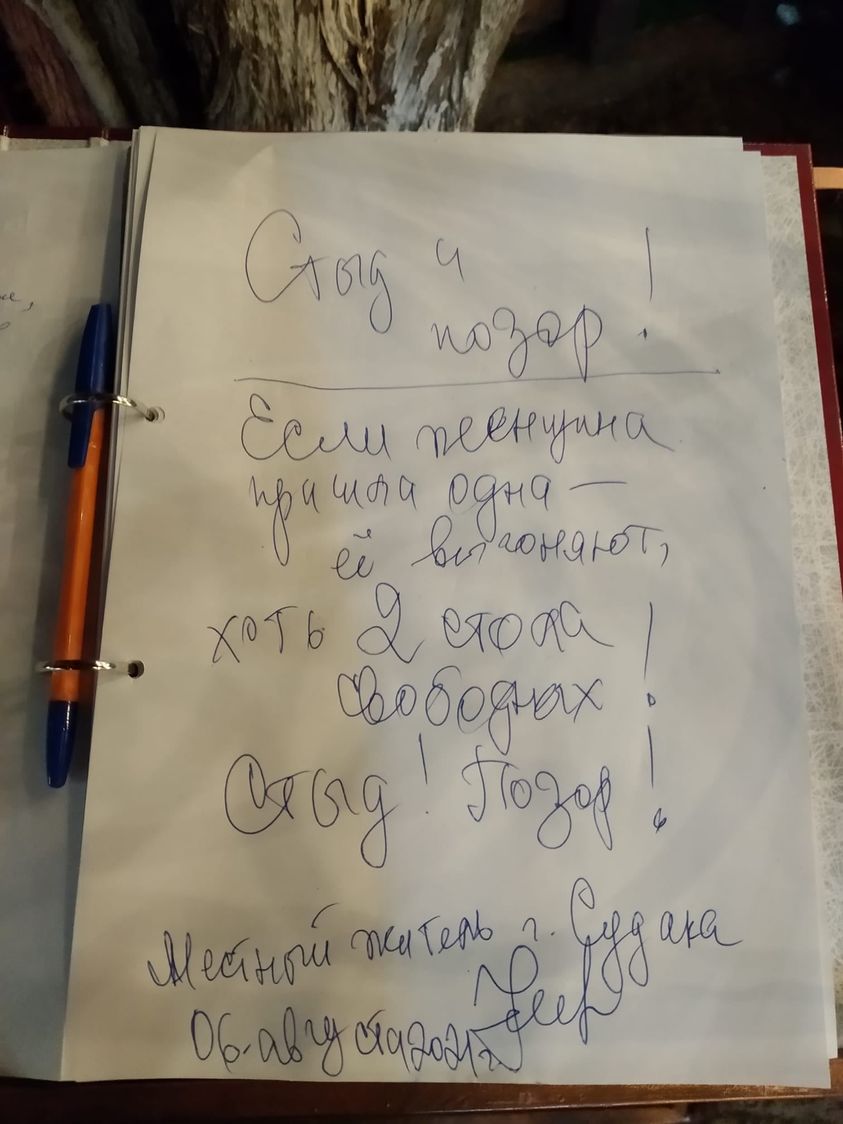 Стыд и
позор!
Если женщина
пришла одна —
её выгоняют,
хоть 2 стола
свободных!
Стыд! Позор!
Местный житель г. Судака
06-августа 2021 г.